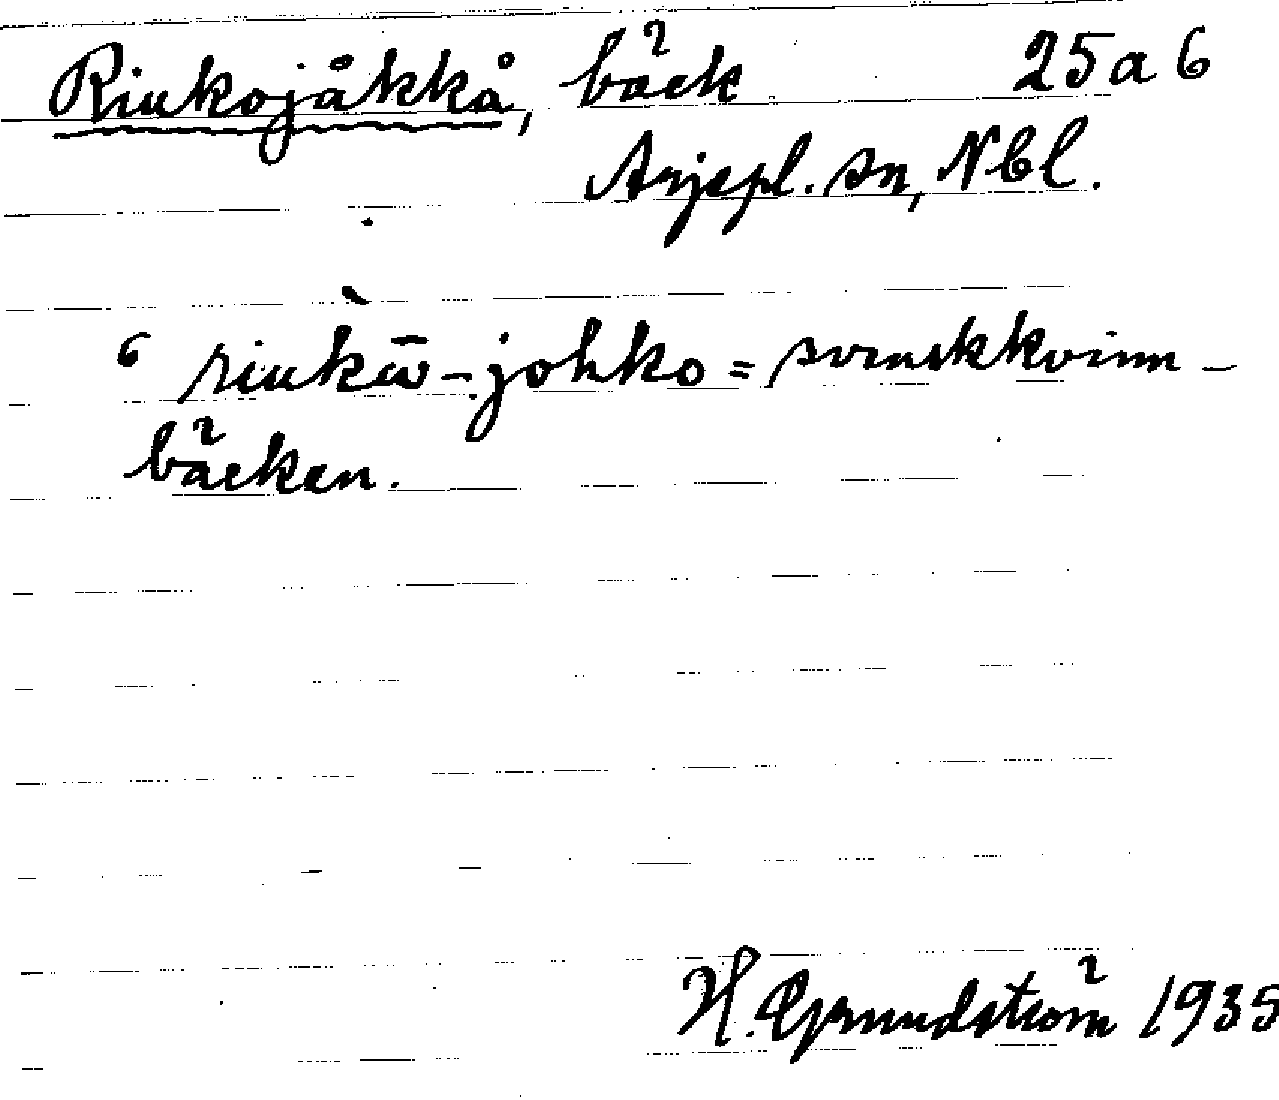 Riukojåkkå, bäck 25a6
Arjepl. sn, Nbl.
6 riuk̀ū-johko = svenskkvinn-
bäcken.
H. Grundström 1935